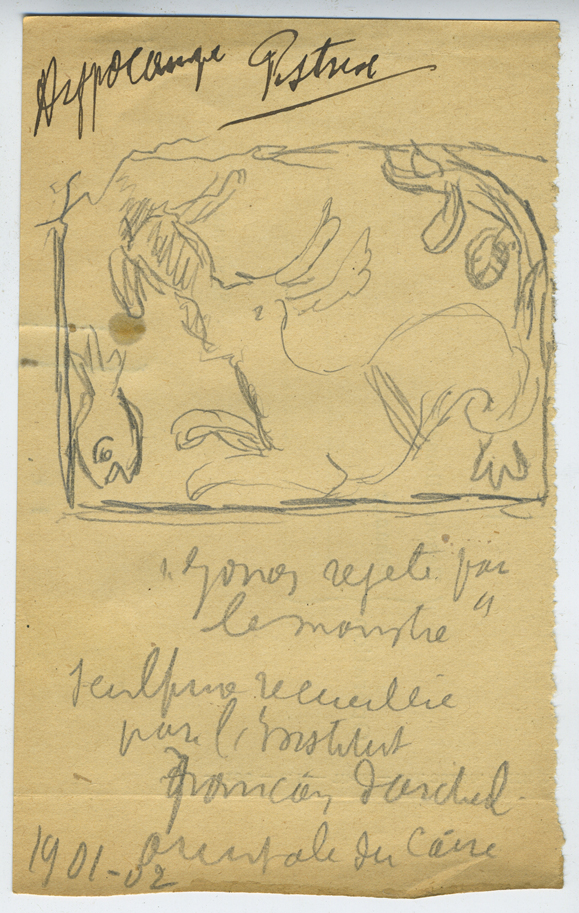 Hyppocampe Pistrix
"Jonas rejeté par
le monstre"
sculpture recueillie
par l'Institut
français d'archéol.
orientale du Caire
1901-02